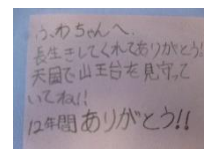 ふわちゃんへ
長生きしてくれてありがとう!
天国で山王台を見守って
いてね!!
12年間ありがとう!!